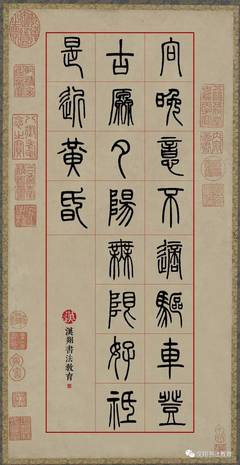 向晚意不適驅車登
古原夕陽無限好祇
是近黃昏
漢翔書法教育
汉翔书法教育